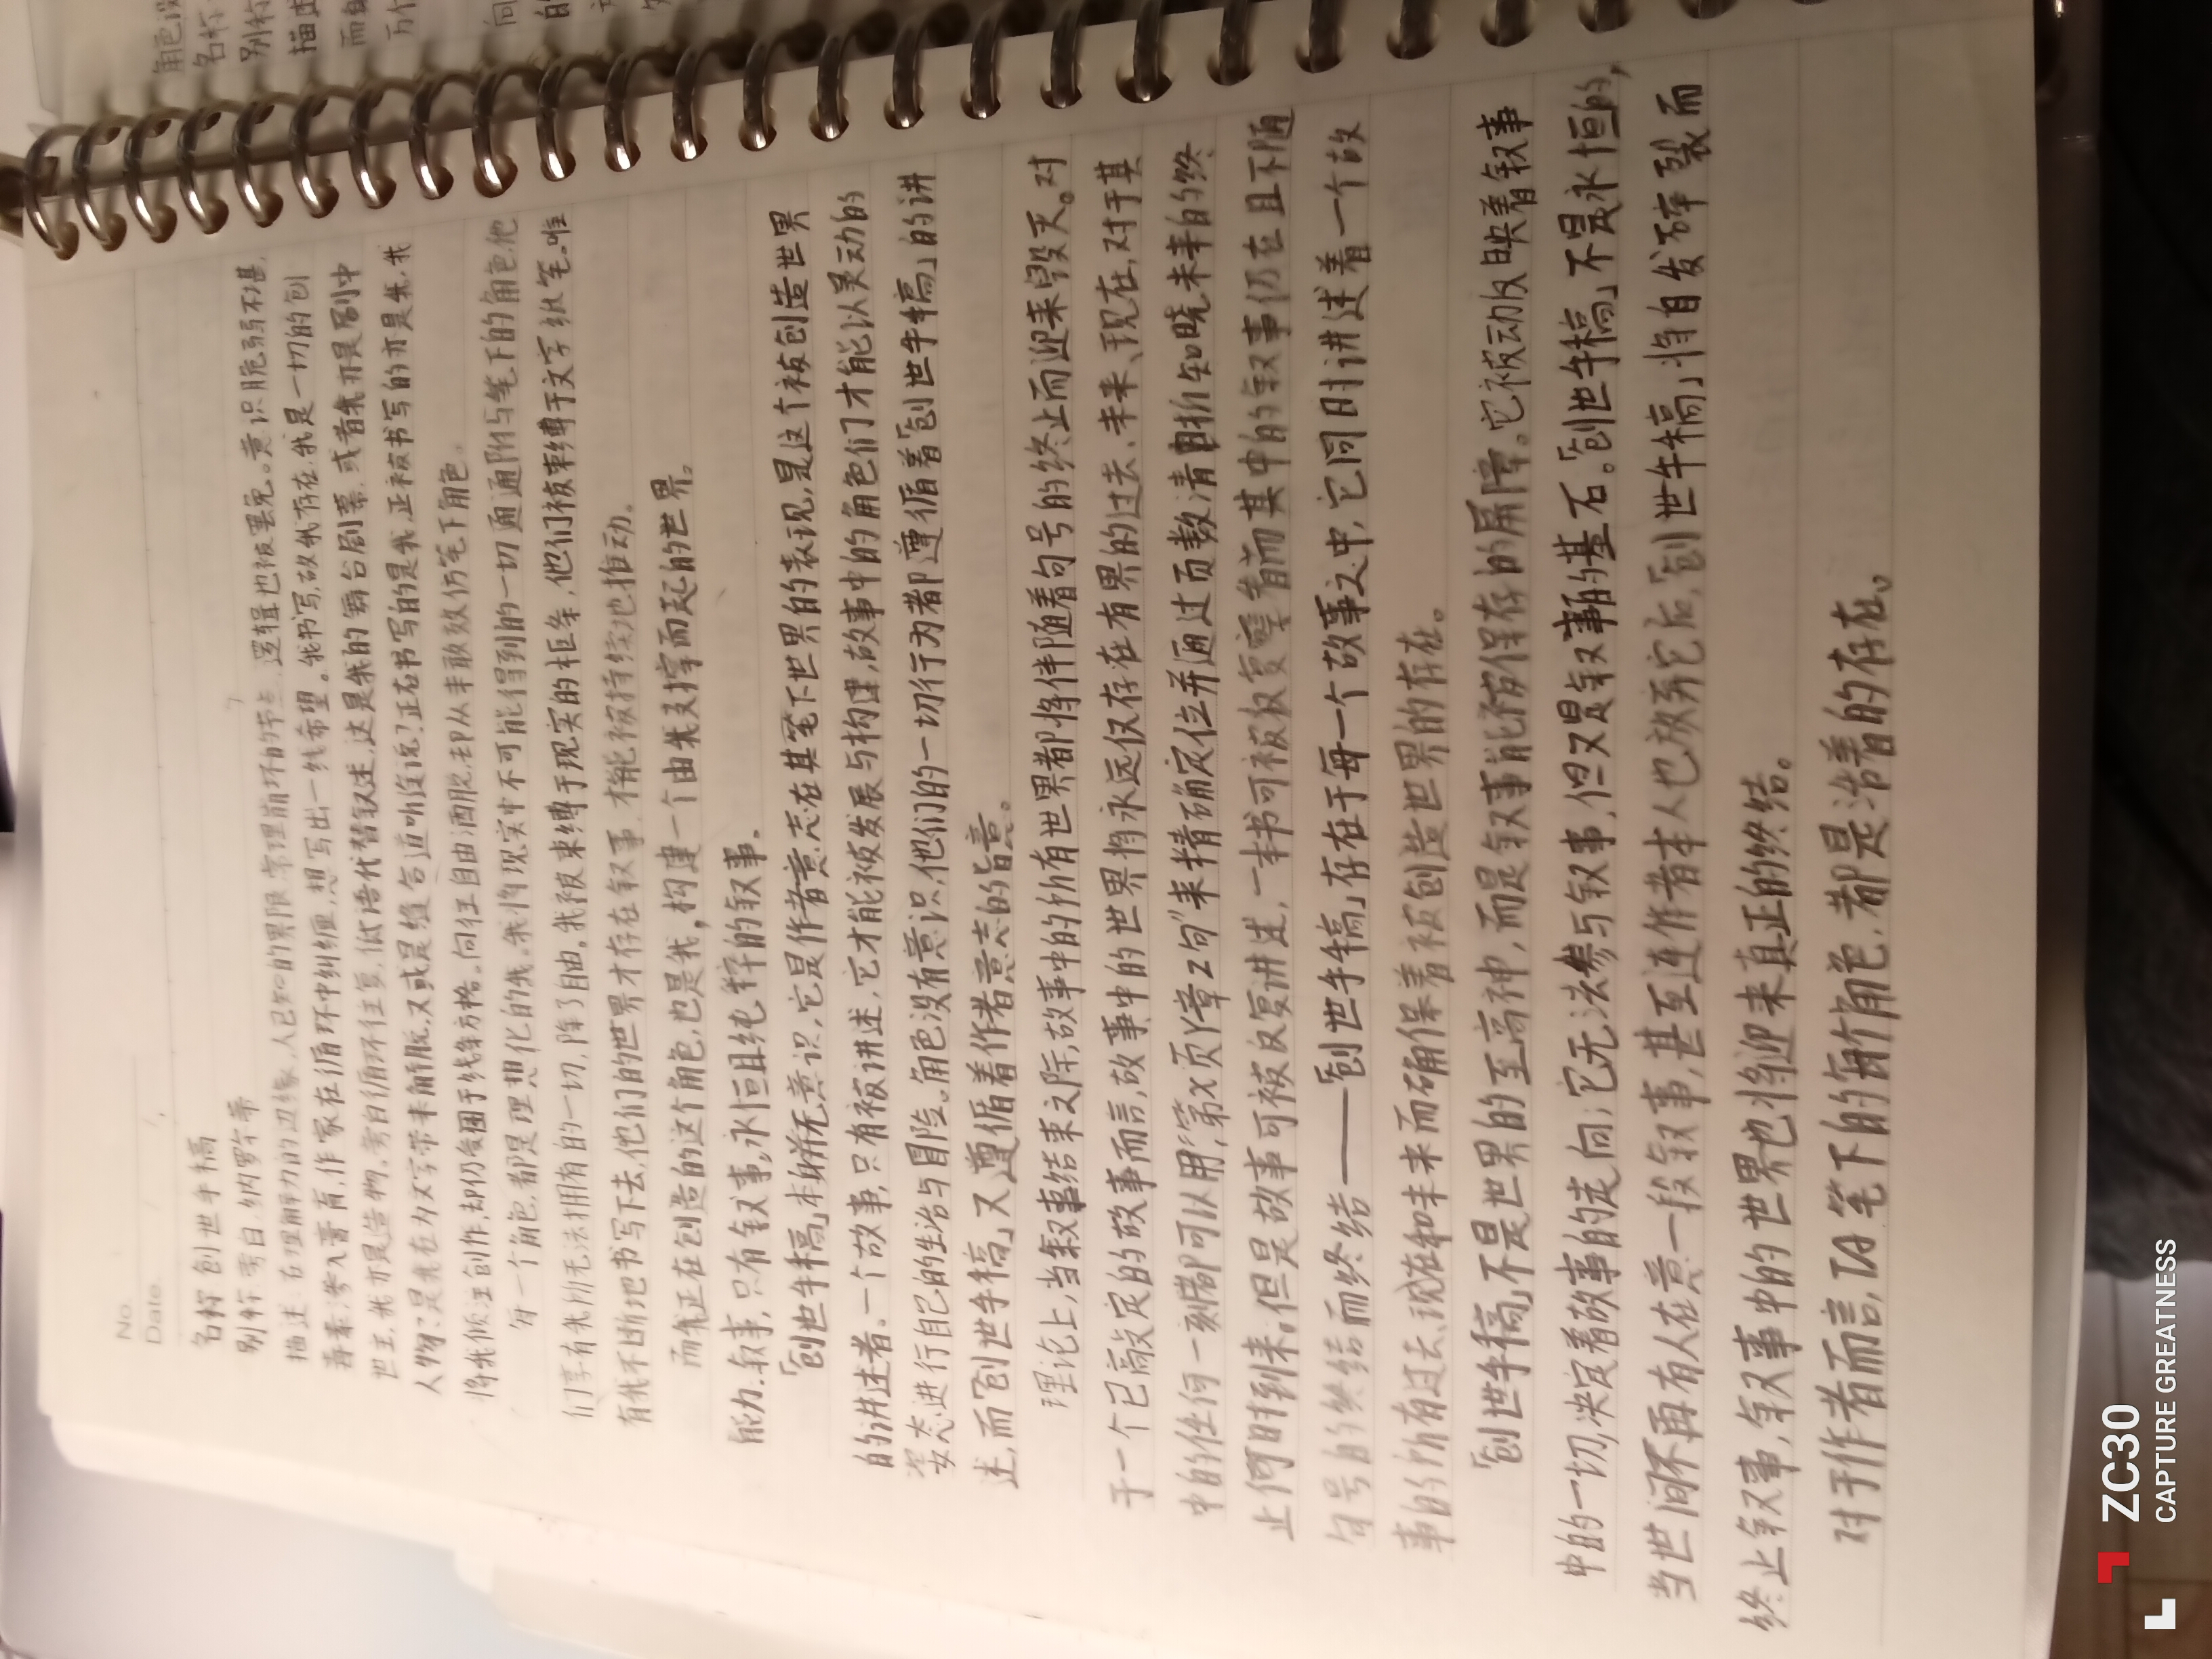 No.
Date
名称:创世手稿
别称:旁白,纳罗尔蒂
描述:在理解力的边缘,人已知的界限,常理崩坏的节点,逻辑也被罢免。意识脆弱不堪,
毒素渗入膏肓,作家在循环中纠缠,想写出一线希望。我书写,故我存在,我是一切的创
世主,我亦是造物。旁白循环往复,低语代替叙述,这是我的舞台剧幕,或者我亦是剧中
人物?是我在为文字带来解脱,又或是缠合道听途说?正在书写的是我,正被书写的亦是我,我
将我倾注创作,却仍受困于线条方格。向往自由洒脱,却从未敢效仿笔下角色。
每一个角色,都是理想化的我。我将现实中不可能得到的一切通附与笔下的角色,他
们享有我所无法拥有的一切,除了自由。我被束缚于现实的框条,他们被束缚于文字纸笔。唯
有我不断地书写下去,他们的世界才存在叙事,才能被持续地推动。
而我正在创造的这个角色,也是我,构建一个由我支撑而起的世界。
能力:叙事,只有叙事。永恒且纯粹的叙事。
「创世手稿」本身并无意识,它是作者意志在其笔下世界的表现,是这个被创造世界
的讲述者。一个故事,只有被讲述,它才能被发展与构建,故事中的角色们才能以灵动的
姿态进行自己的生活与冒险。角色没有意识,他们的一切行为都遵循着「创世手稿」的讲
述,而「创世手稿」又遵循着作者意志的旨意。
理论上,当叙事结束之际,故事中的所有世界都将伴随着句号的终止而迎来毁灭。对
于一个已敲定的故事而言,故事中的世界将永远仅存在有界的过去、未来、现在,对于其
中的任何一刻都可以用"第X页Y章Z句"来精确定位并通过页数清晰知晓未来的终
止何时到来。但是故事可被反复讲述,一本书可被反复穿着而其中的叙事仍在且不随
句号的终结而终结——「创世手稿」存在于每一个故事之中,它同时讲述着一个故
事的所有过去、现在和未来而确保着被创造世界的存在。
「创世手稿」不是世界的至高神,而是叙事能被保存的屏障。它被动反映着叙事
中的一切,决定着故事的走向;它无法参与叙事,但又是叙事的基石。「创世手稿」不是永恒的,
当世间不再有人在意一段叙事,甚至连作者本人也放弃它后,「创世手稿」将自发碎裂而
终止叙事,叙事中的世界也将迎来真正的终结。
对于作者而言,TA笔下的每个角色,都是活着的存在。
ZC30
CAPTURE GREATNESS